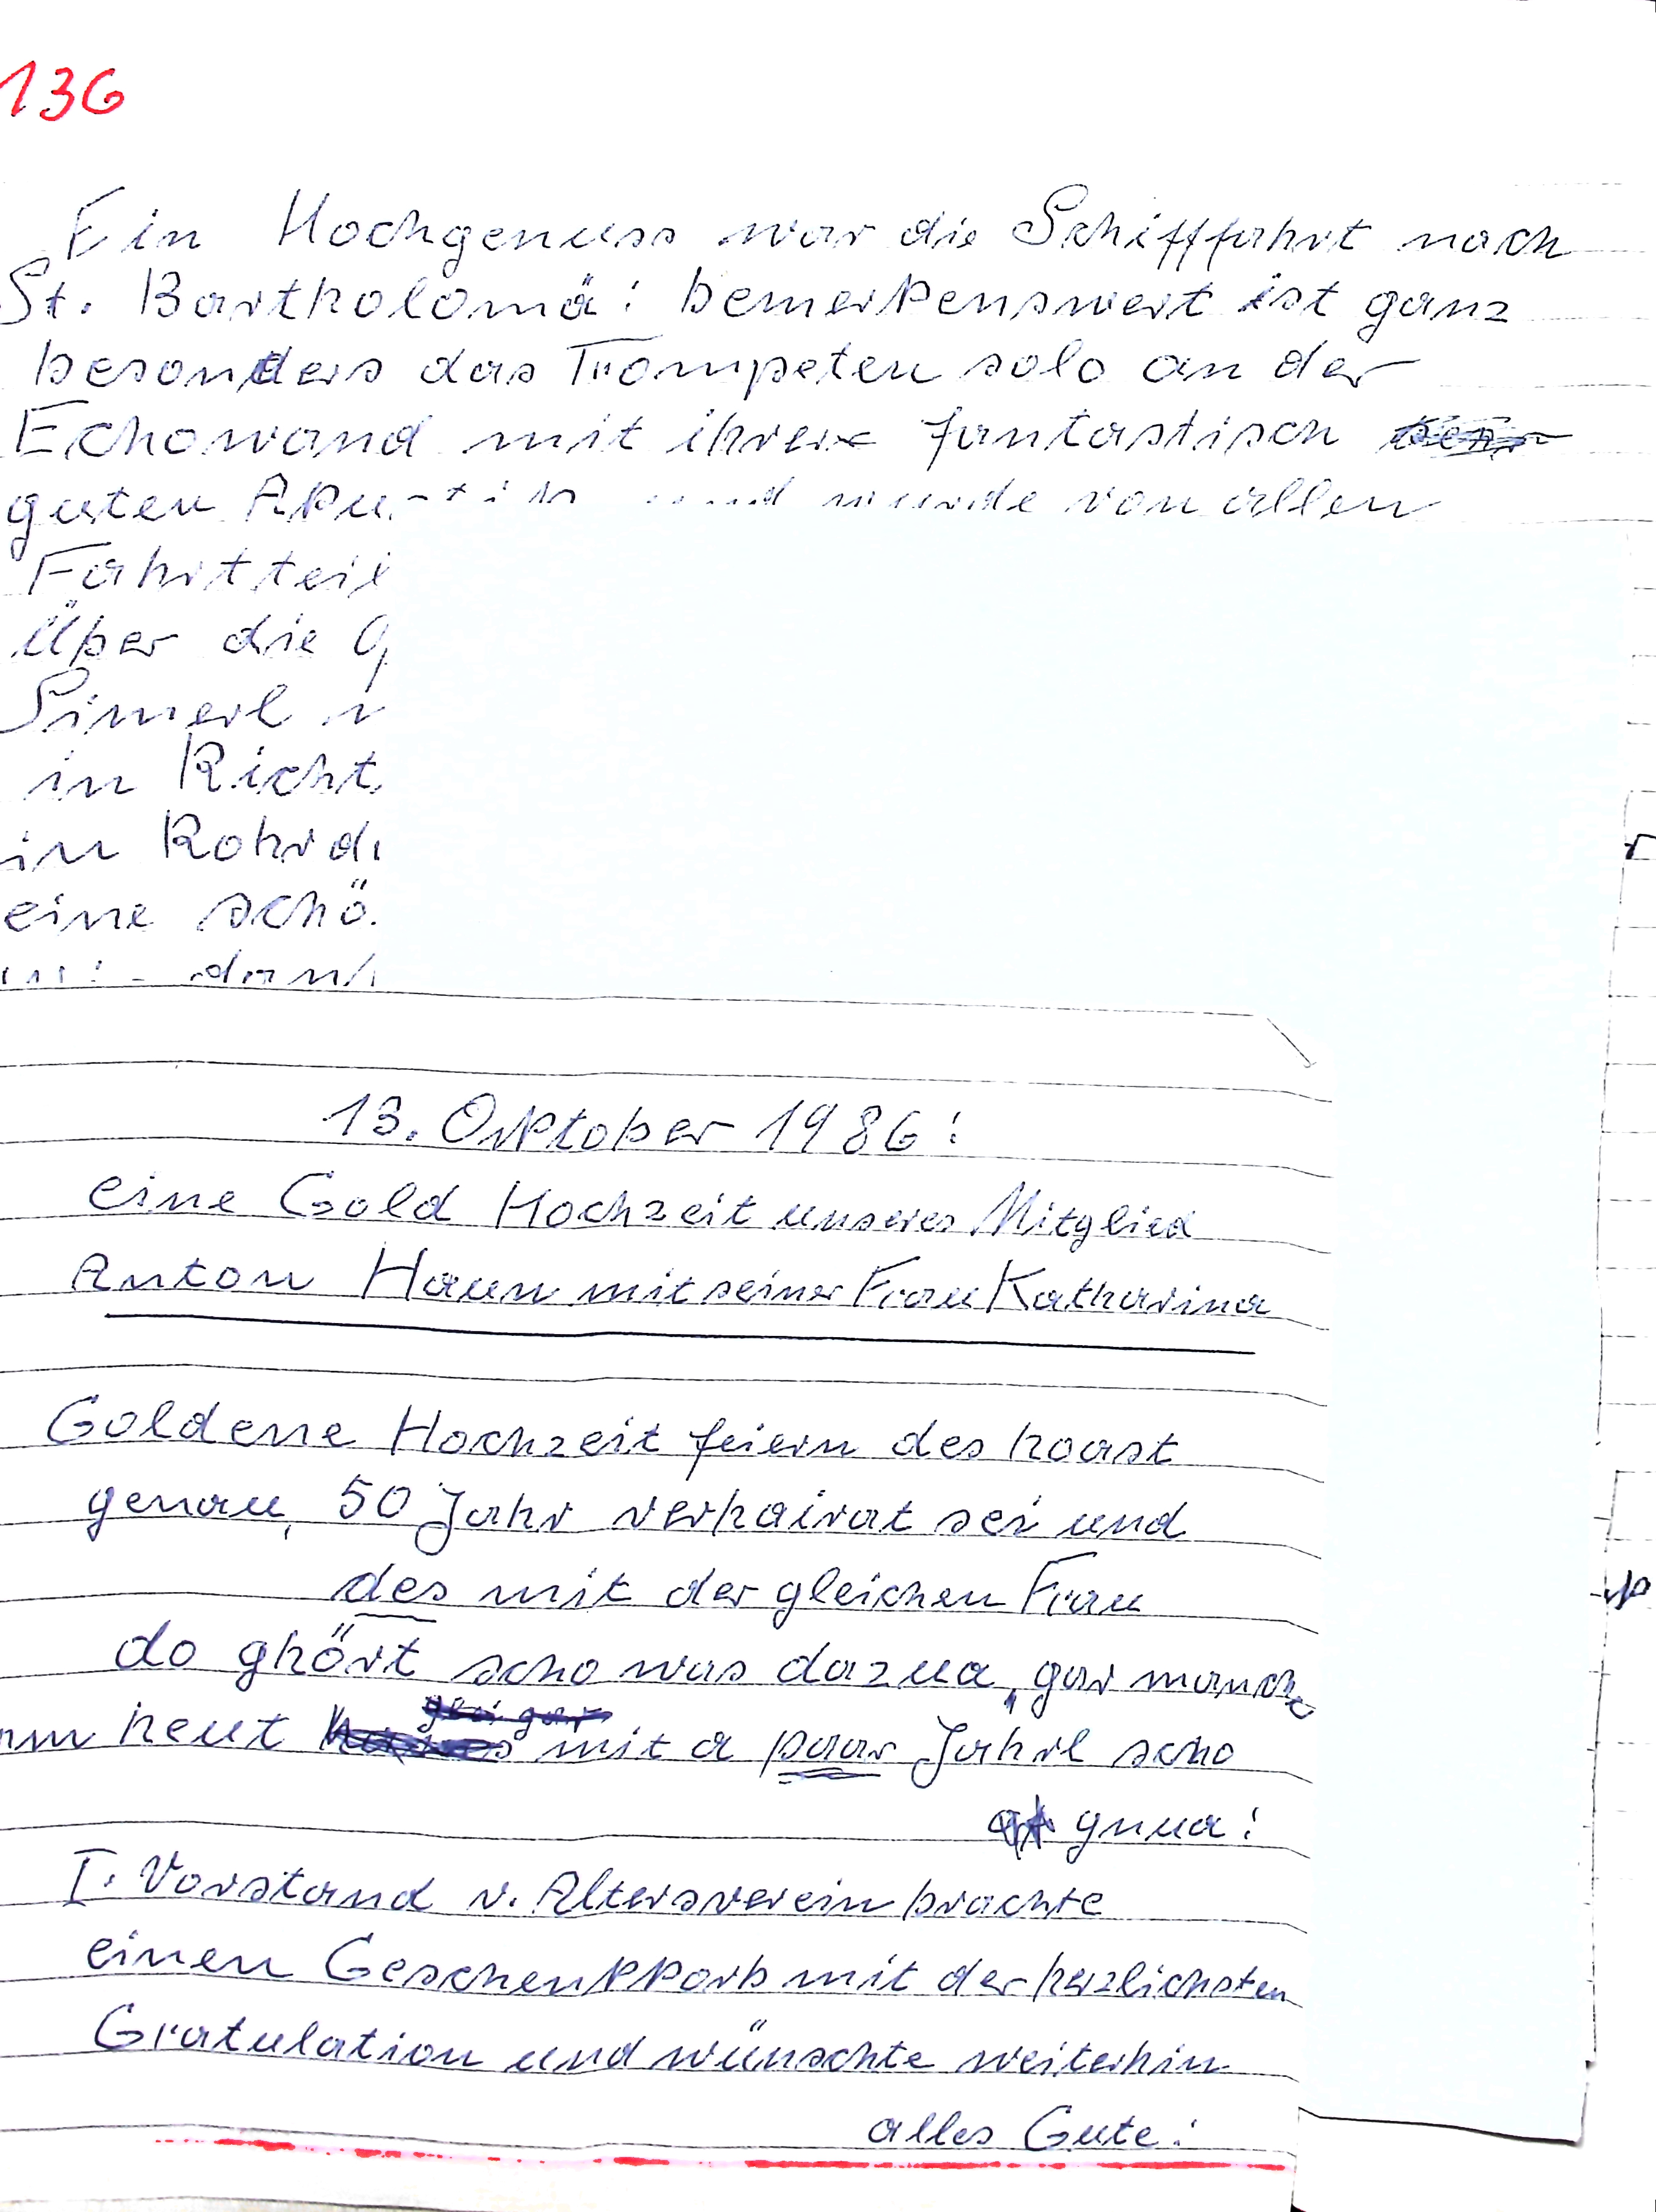 136
Ein Hochgenuss war die Schifffahrt nach
St. Bartholomä! bemerkenswert ist ganz
besonders das Trompeten solo an der
Echowand mit ihrer fantastisch
guten und wurde von allen
Fahrtteil
Über die
Simerl
in Richt
in Rohrd
eine schö
13. Oktober 1986!
eine Gold Hochzeit unseres Mitglied
Anton Haun mit seiner Frau Katharina
Goldene Hochzeit feiern des hoast
genau, 50 Jahr verhairat sei und
des mit der gleichen Frau
do ghört scho was dazua, gar manche
heut mit a paar Jahrl scho
gnua!
I. Vorstand v. Altersverein brachte
einen Geschenkkorb mit der herzlichsten
Gratulation und wünschte weiterhin
alles Gute!